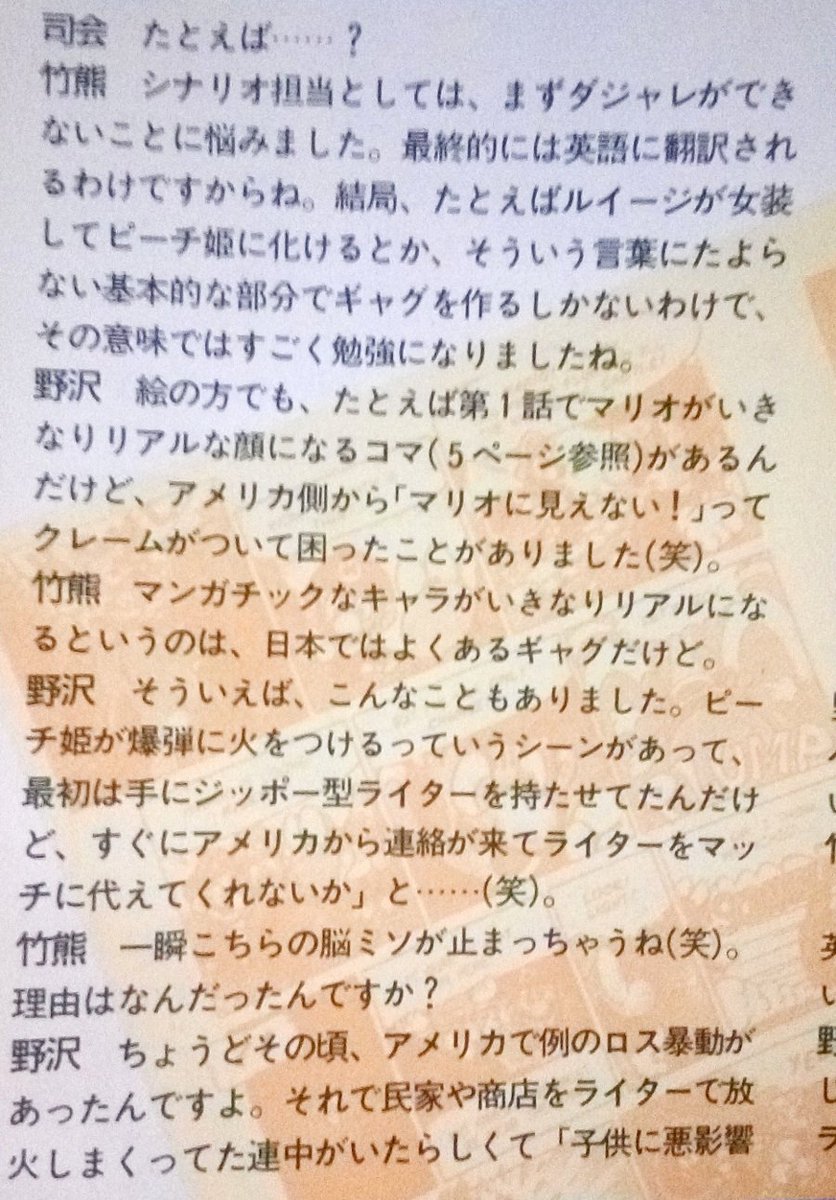 司会　たとえば……？
竹熊　シナリオ担当としては、まずダジャレができ
ないことに悩みました。最終的には英語に翻訳され
るわけですからね。結局、たとえばルイージが女装
してピーチ姫に化けるとか、そういう言葉にたよら
ない基本的な部分でギャグを作るしかないわけで、
その意味ではすごく勉強になりましたね。
野沢　絵の方でも、たとえば第1話でマリオがいき
なりリアルな顔になるコマ(5ページ参照)があるん
だけど、アメリカ側から「マリオに見えない！」って
クレームがついて困ったことがありました(笑)。
竹熊　マンガチックなキャラがいきなりリアルにな
るというのは、日本ではよくあるギャグだけど。
野沢　そういえば、こんなこともありました。ピー
チ姫が爆弾に火をつけるっていうシーンがあって、
最初は手にジッポー型ライターを持たせてたんだけ
ど、すぐにアメリカから連絡が来てライターをマッ
チに代えてくれないか」と……(笑)。
竹熊　一瞬こちらの脳ミソが止まっちゃうね(笑)。
理由はなんだったんですか？
野沢　ちょうどその頃、アメリカで例のロス暴動が
あったんですよ。それで民家や商店をライターで放
火しまくってた連中がいたらしくて「子供に悪影響